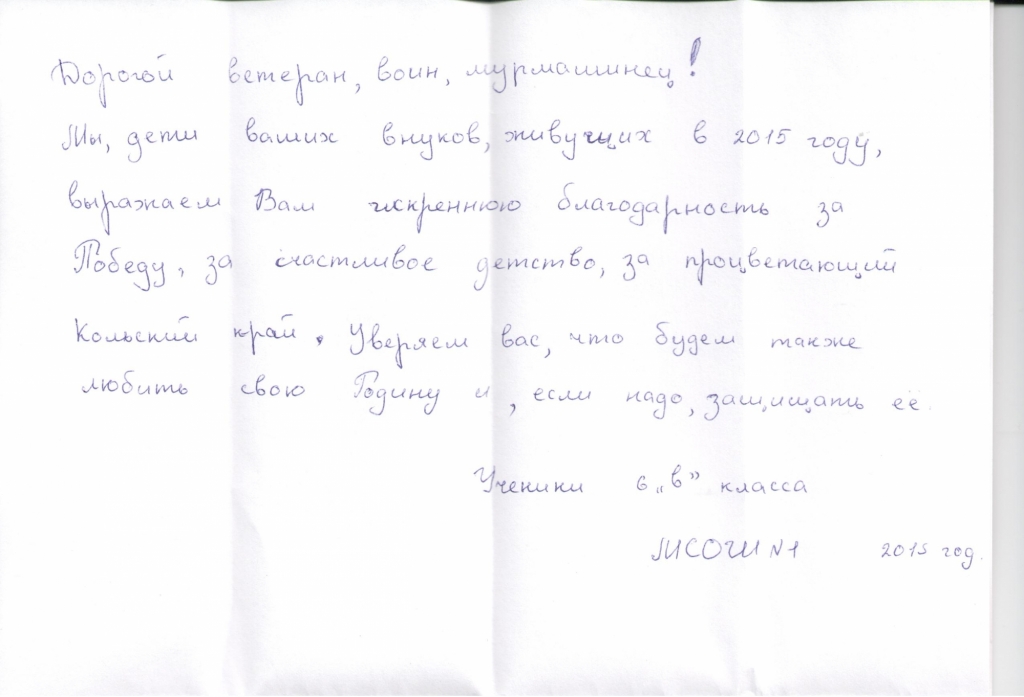 Дорогой ветеран, воин, мурмашинец!
Мы, дети ваших внуков, живущих в 2015 году,
выражаем Вам искреннюю благодарность за
Победу, за счастливое детство, за процветающий
Кольский край. Уверяем вас, что будем также
любить свою Родину и, если надо, защищать её.
Ученики 6 „в” класса
МСОШ N1 2015 год.